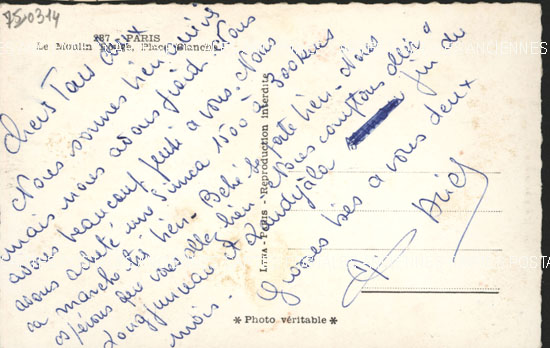 75-0314
287 - PARIS
Le Moulin Rouge, Place Blanche
Chers Tous deux
Nous sommes bien arrivés
mais nous avons froid. Nous
avons beaucoup pensé à vous. Nous
avons acheté une Simca 1500 à 300 kms
ça marche très bien. Bébé se porte bien. Nous
espérons que vous allez bien. Nous comptons aller à
Longjumeau et fin du
mois.
Grosses bises à vous deux
LYNA - PARIS - Reproduction interdite
* Photo véritable *